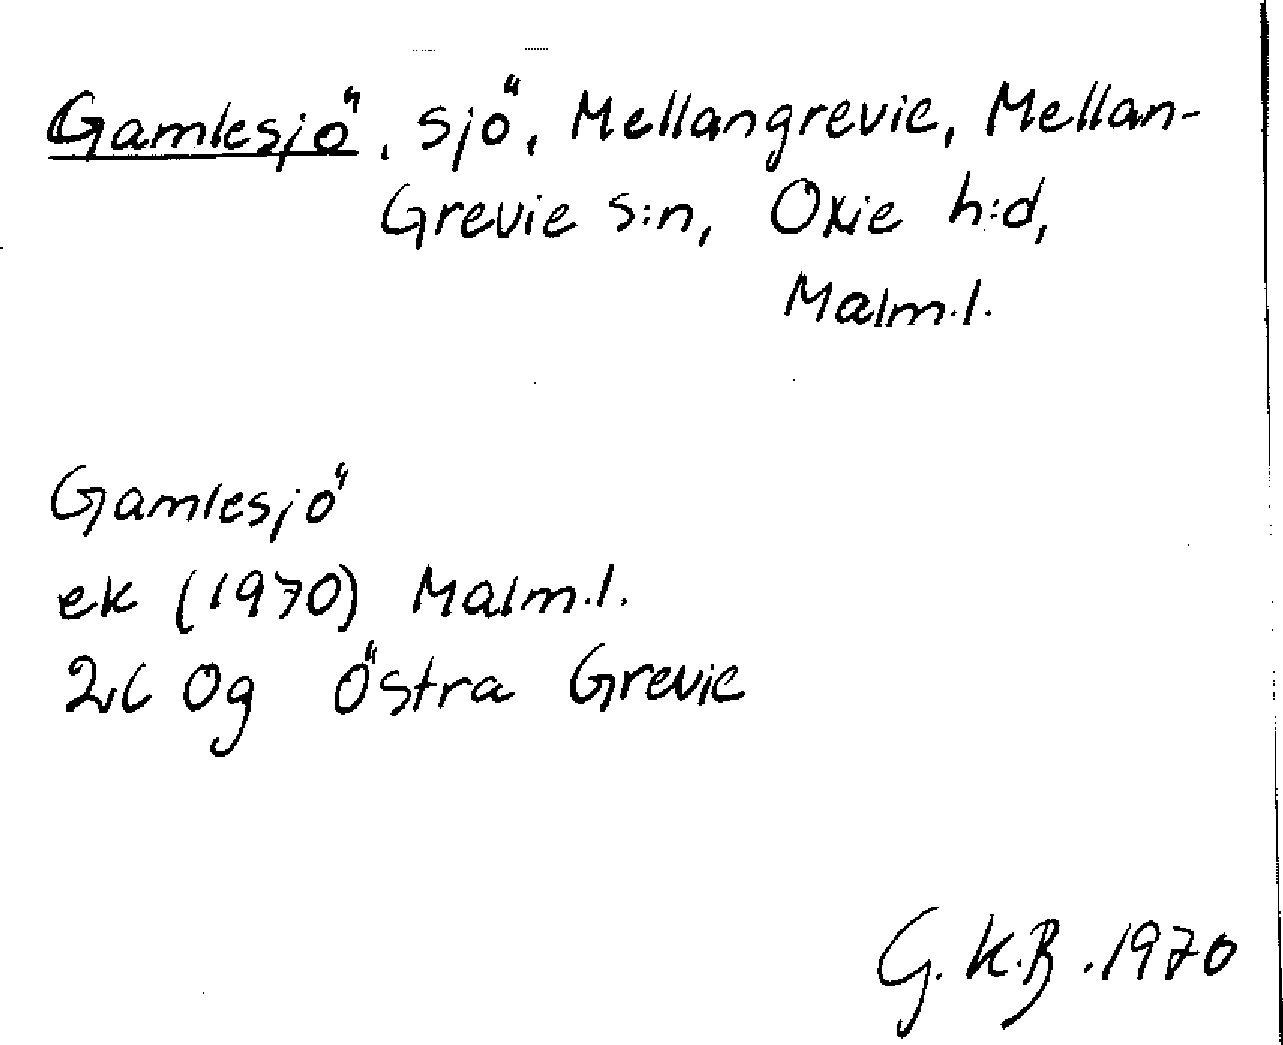 Gamlesjö, sjö, Mellangrevie, Mellan-
Grevie s:n, Oxie h:d,
Malm.l.
Gamlesjö
ek (1970) Malm.l.
2C 0g Östra Grevie
G.K.B. 1970